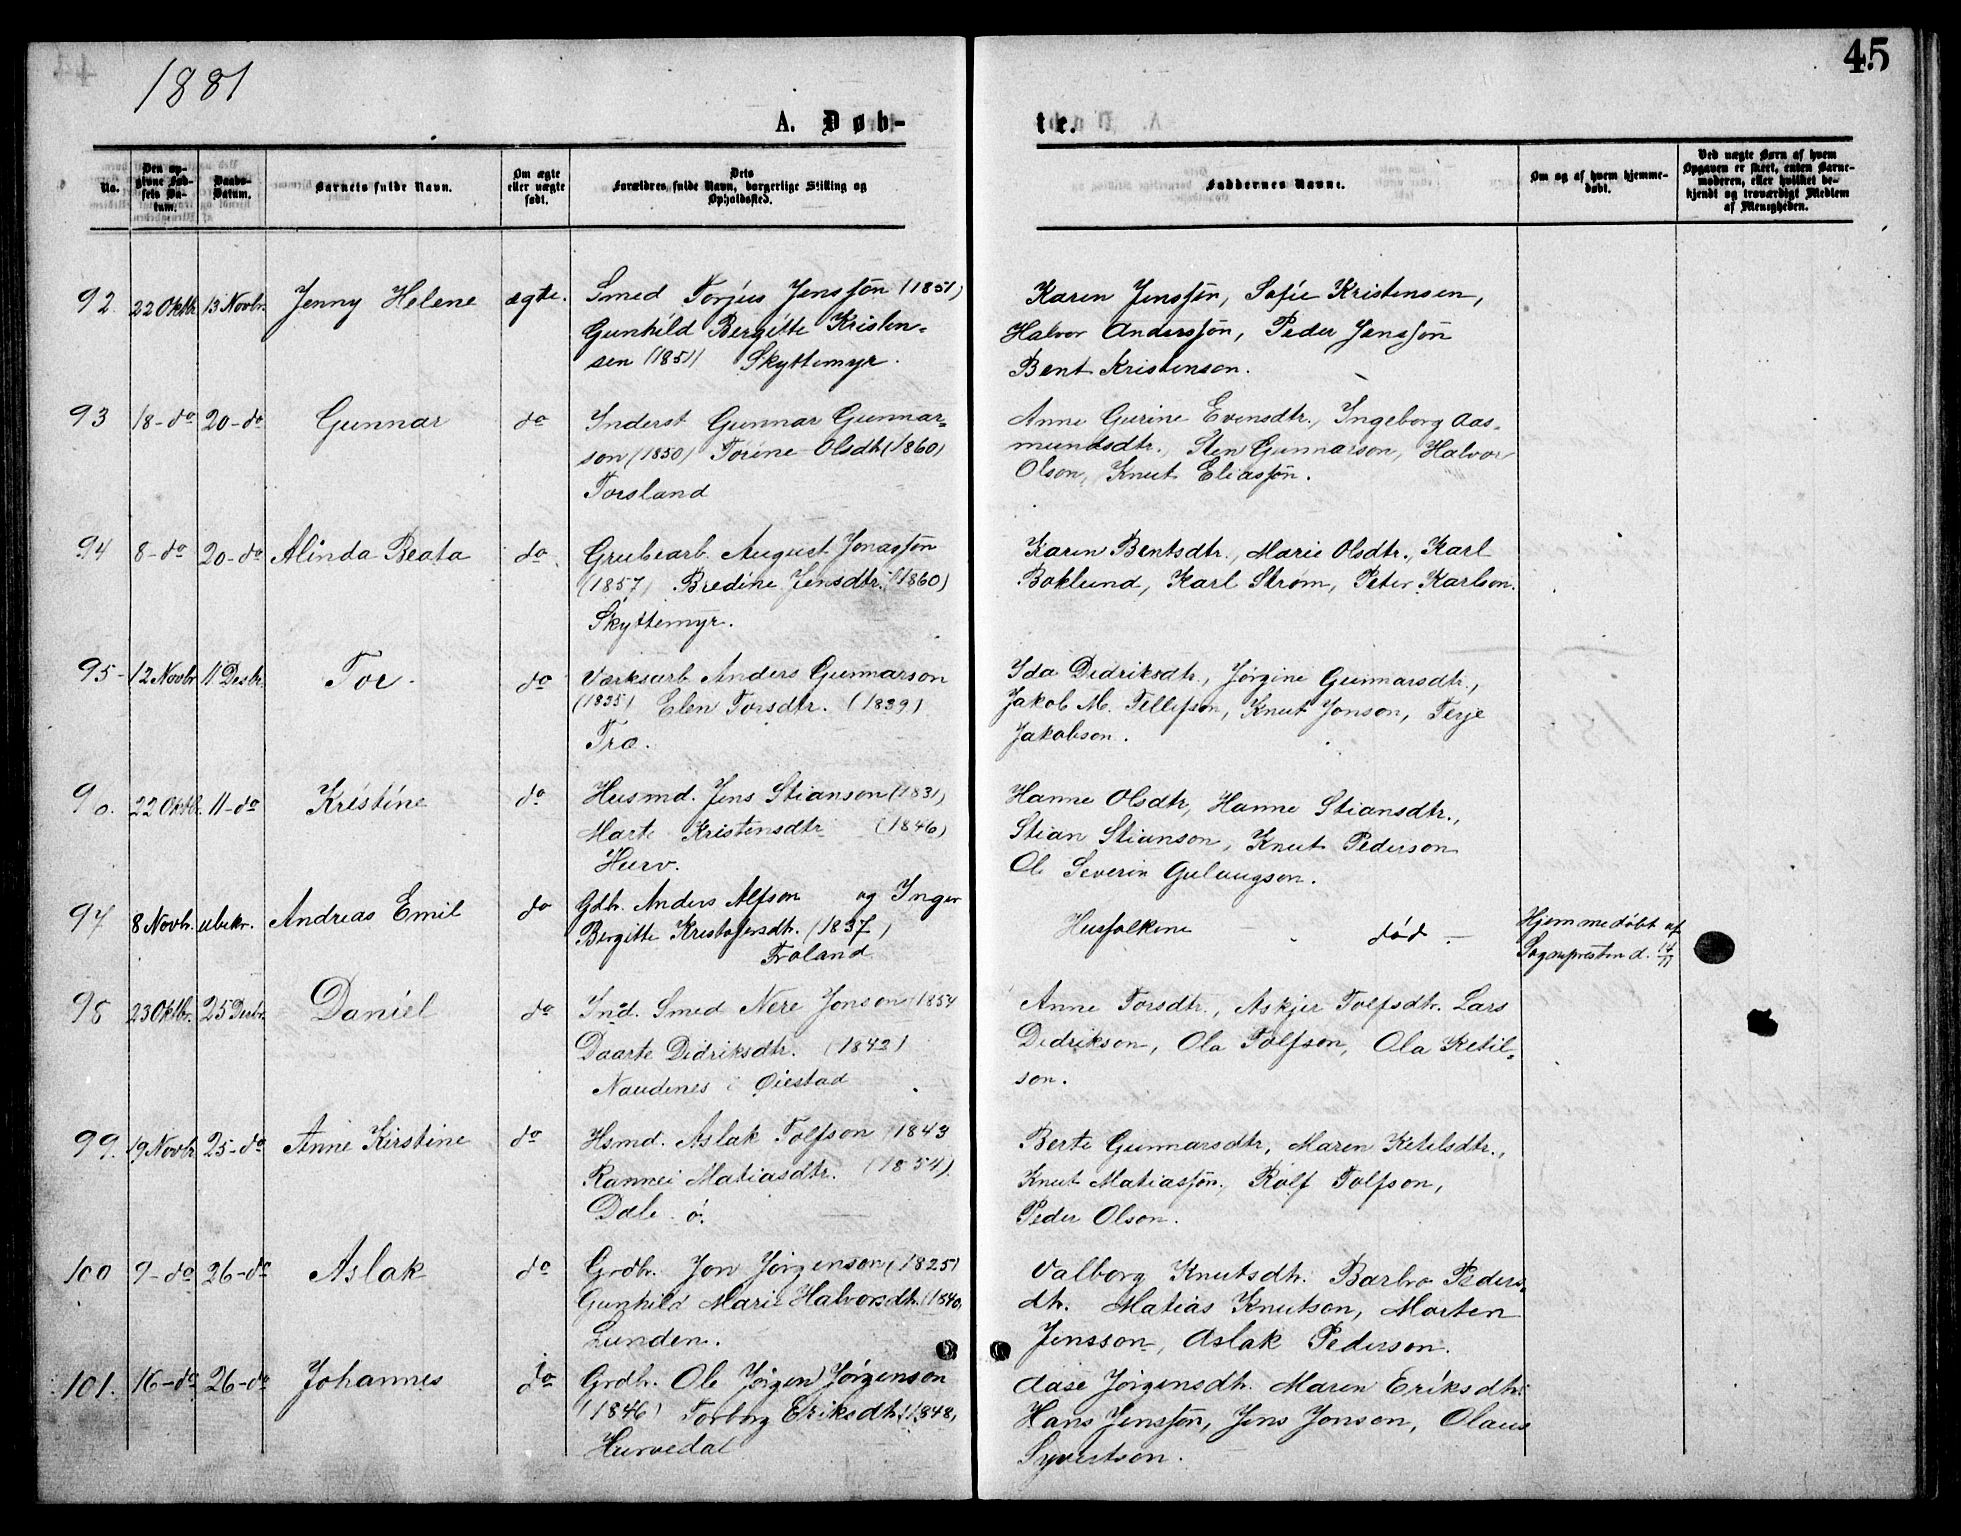 1881
45
A. Døb-
te.
No.
Den op-
givne Fød-
sels Da-
tum.
Daabs-
Datum.
Barnets fulde Navn.
Om ægte
eller uægte
født.
Dets
Forældres fulde Navn, borgerlige Stilling og
Opholdssted.
Faddernes Navne.
Om og af hvem hjemme-
døbt.
Ved uægte Børn af hvem
Opgaven er skeet, enten Barne-
moderen, eller hvilket be-
kjendt og troværdigt Medlem
af Menigheden.
92. 22 Oktbr. 13 Novbr. Jenny Helene ægte. Smed Torjus Jensson (1851)
Gunhild Bergitte Kristen-
sen (1851) Skyttemyr.
Karen Jensson, Sofie Kristensen,
Halvor Andersson, Peder Jensson
Bent Kristenson.
93 18-do 20-do Gunnar do Inderst Gunnar Gunnar-
son (1850) Torine Olsdtr (1860)
Torsland
Anne Gurine Evensdtr., Ingeborg Aas-
mundsdtr., Sten Gunnarson, Halvor
Olson, Knut Eliasson.
94 8-do 20-do Alinda Beata do. Grubearb. August Jonasson
(1857) Bredine Jensdtr. (1860)
Skyttemyr.
Karen Bentsdtr., Marie Olsdtr., Karl
Boklund, Karl Strøm, Peter Karlson.
95- 12 Novbr 11 Desbr. Tor. do Værksarb. Anders Gunnarson
(1835) Elen Torsdtr. (1839)
Tro.
Ida Didriksdtr., Jørgine Gunnarsdtr.,
Jakob M. Tellefson, Knut Jonson, Terje
Jakobson.
96. 22 Oktb. 11-do Kristine do Husmd. Jens Stianson (1831)
Marte Kristensdtr (1846)
Hurv.
Hanne Olsdtr, Hanne Stiansdtr.,
Stian Stianson, Knut Pederson
Ole Severin Gulaugson.
97 8 Novbr. ubekr. Andreas Emil do Gdbr. Anders Alfson og Inger
Bergitte Kristofersdtr. (1837)
Froland
Husfolkene død.
Hjemmedøbt af
Sognepresten d. 14/11
98 23 Oktbr. 25 Desbr. Daniel do Ind. Smed Nere Jonson (1854
Daarte Didriksdtr. (1843)
Naudenes i Øiestad
Anne Torsdtr., Askjer Tolfsdtr. Lars
Didrikson, Ola Tolfson, Ola Ketil-
son.
99. 19 Novbr 25-do Anne Kirstine do Hsmd. Aslak Tolfson (1843
Rannei Matiasdtr. (1854).
Dale ø.
Berte Gunnarsdtr, Maren Ketilsdtr.,
Knut Matiasson, Rolf Tolfson,
Peder Olson.
100 9-do 26-do Aslak do Grdbr. Jon Jørgenson (1825)
Gunhild Marie Halvorsdtr. (1840)
Lunden.
Valborg Knutsdtr. Barbro Peders-
dtr. Matias Knutson, Morten
Jensson, Aslak Pederson.
101. 16-do 26-do Johannes do Grdbr. Ole Jørgen Jørgenson
(1846) Torborg Eriksdtr. (1848)
Hurvedal
Aase Jørgensdtr. Maren Eriksdtr.
Hans Jensson, Jens Jonson, Olaus
Syvertson.